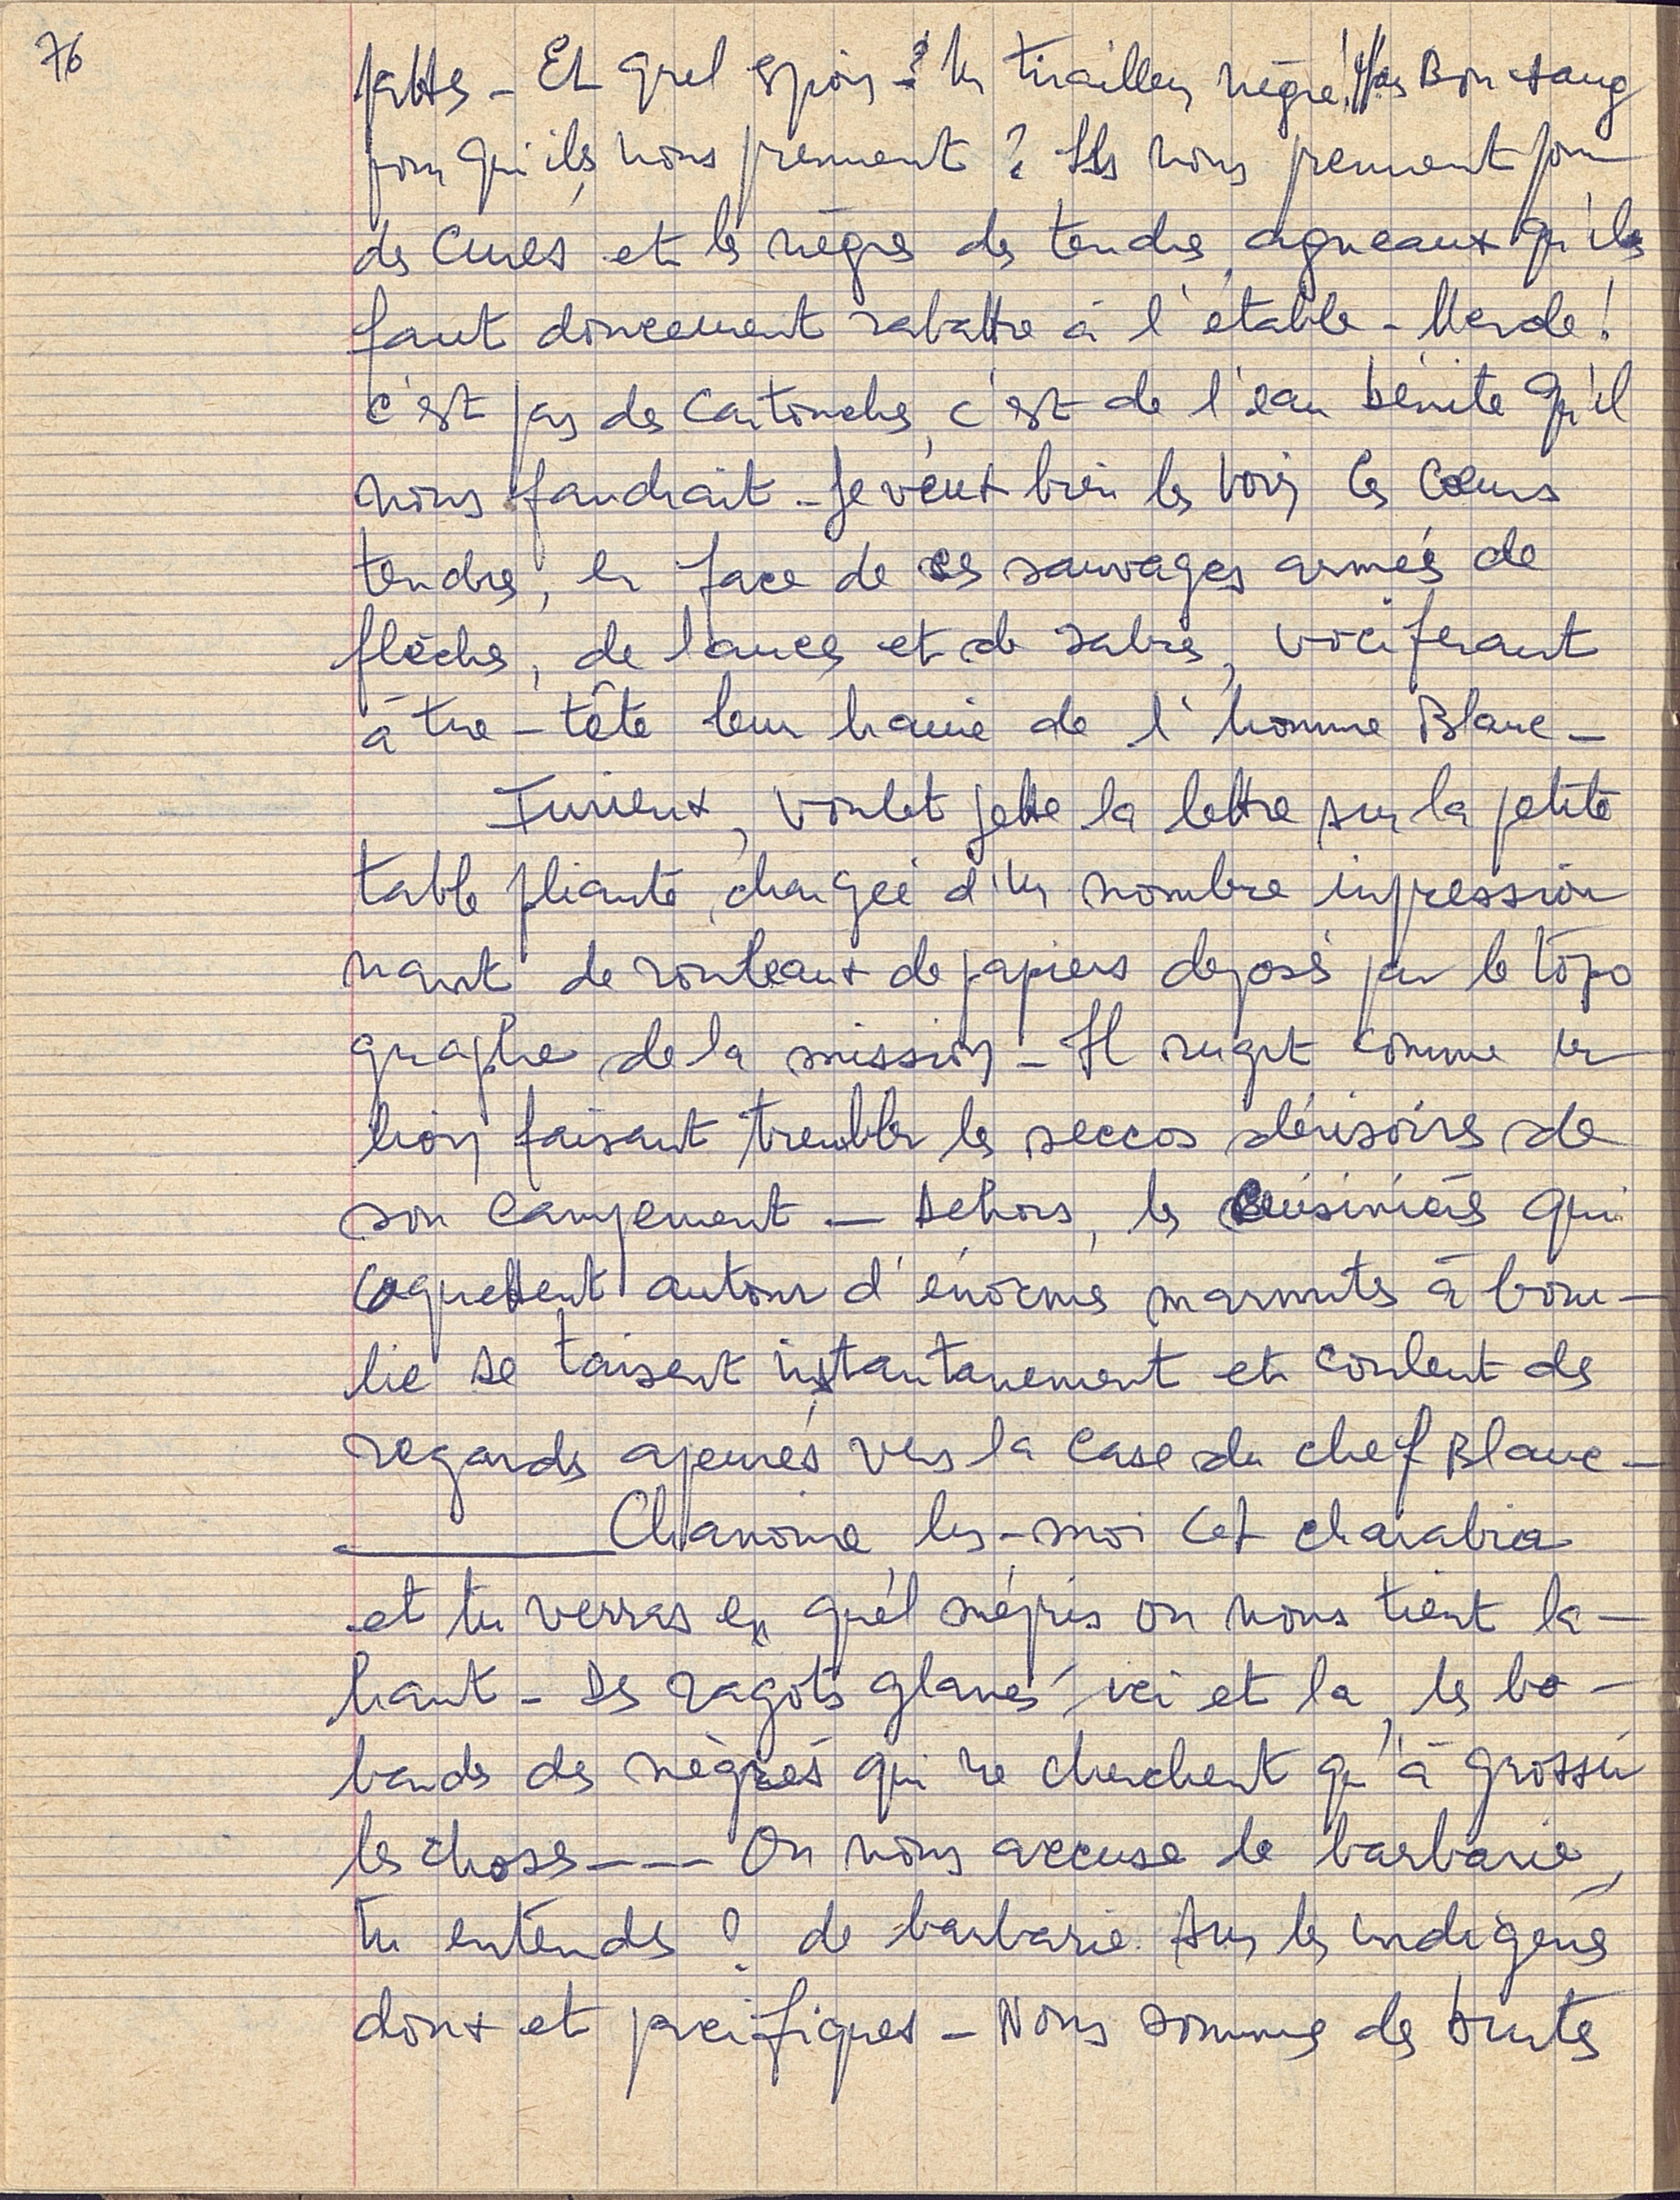 76
pattes - Et quel espion ? Un tirailleur nègre ! Mais Bon sang
pour qui ils nous prennent ? Ils nous prennent pour
des curés et les nègres des tendres agneaux qu'ils
faut doucement rabattre à l'étable - Merde !
c'est pas des cartouches, c'est de l'eau bénite qu'il
nous faudrait - Je veux bien les voir ces cœurs
tendres, en face de ces sauvages armés de
flèches, de lances et de sabres, vociferant
à tue-tête leur haine de l'homme Blanc -
Furieux, Voulet jette la lettre sur la petite
table pliante, chargée d'un nombre impression
nant de rouleaux de papiers déposés par le topo
graphe de la mission - Il rugit comme un
lion faisant trembler les seccos dérisoires de
son campement - Dehors, les cuisinières qui
caquettent autour d'énormes marmites à boui-
lie se taisent instantanement et coulent des
regards apeurés vers la case du chef Blanc -
Chanoine lis-moi cet charabia
et tu verras en quel mépris on nous tient là-
haut - Des ragots glanés ici et là, les bo-
bards des nègres qui ne cherchent qu'à grossir
les choses --- On nous accuse de barbarie,
tu entends ? de barbarie sur les indigènes
doux et pacifiques - Nous sommes des brutes